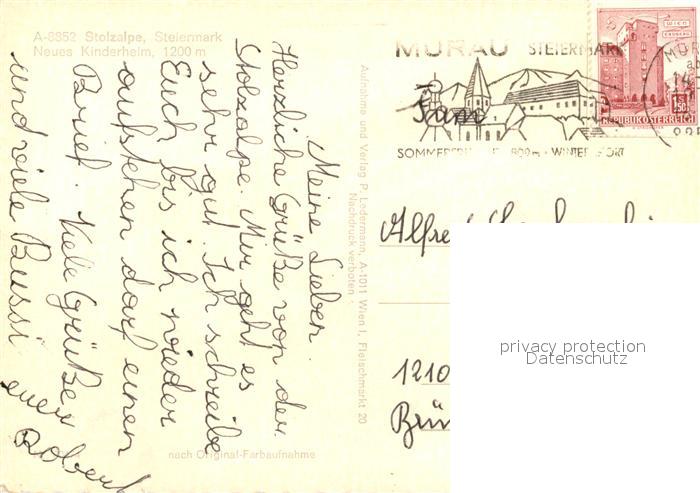 A-8852 Stolzalpe, Steiermark
Neues Kinderheim, 1200 m
Meine Lieben.
Herzliche Grüße von der
Stolzalpe. Mir geht es
sehr gut. Ich schreibe
Euch bis ich wieder
aufstehen darf einen
Brief. Viele Grüße
und viele Bussi euer
Robert
nach Original-Farbaufnahme
Aufnahme und Verlag P. Ledermann, A-1011 Wien I, Fleischmarkt 20
Nachdruck verboten
MURAU STEIERMARK
WIEN
ERDBERG
S 1.50
REPUBLIK ÖSTERREICH
800m · WINTERSPORT
Fam
Alfred
privacy protection
Datenschutz
1210
Brün